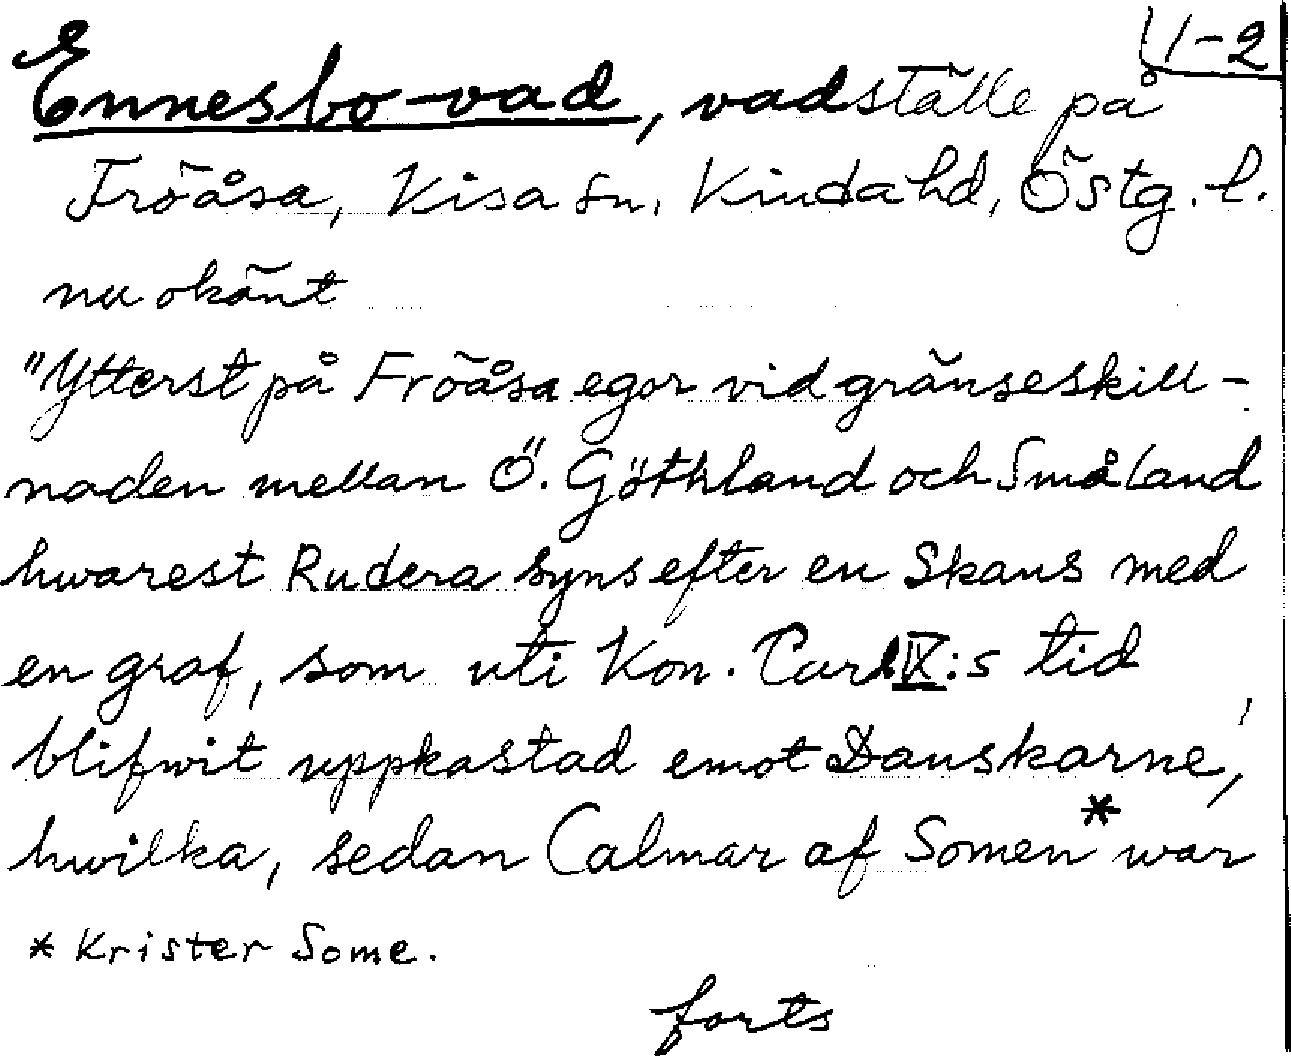 1-2
Ennesbo-vad, vadställe på
Fröåsa, Kisa sn, Kinda hd, Östg. l.
nu okänt
"Ytterst på Fröåsa egor vid gränseskill-
naden mellan Ö. Göthland och Småland
hwarest Rudera syns efter en Skans med
en graf, som uti Kon. Carl IX:s tid
blifwit uppkastad emot Danskarne,
hwilka, sedan Calmar af Somen* war
* Krister Some.
forts